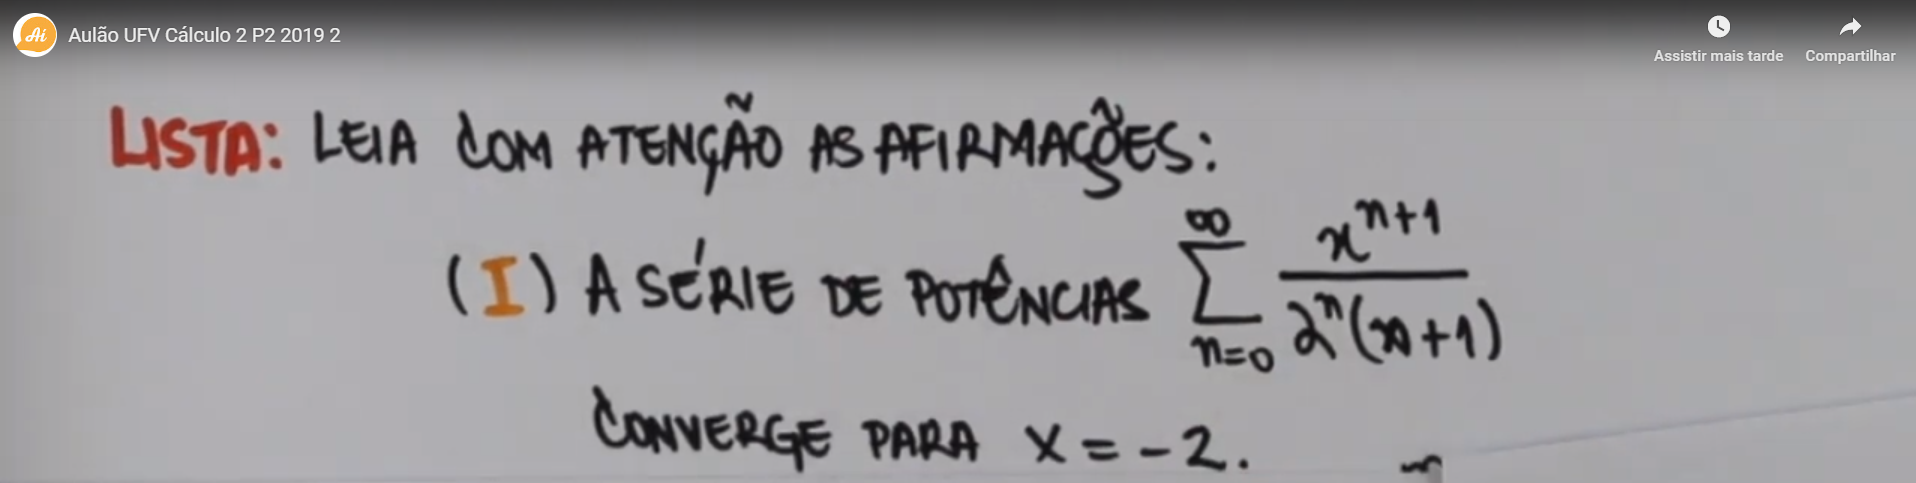 Ai Aulão UFV Cálculo 2 P2 2019 2
Assistir mais tarde Compartilhar
LISTA: LEIA COM ATENÇÃO AS AFIRMAÇÕES:
(I) A SÉRIE DE POTÊNCIAS ∑_{n=0}^{∞} x^{n+1} / 2^n(n+1)
CONVERGE PARA X = -2.